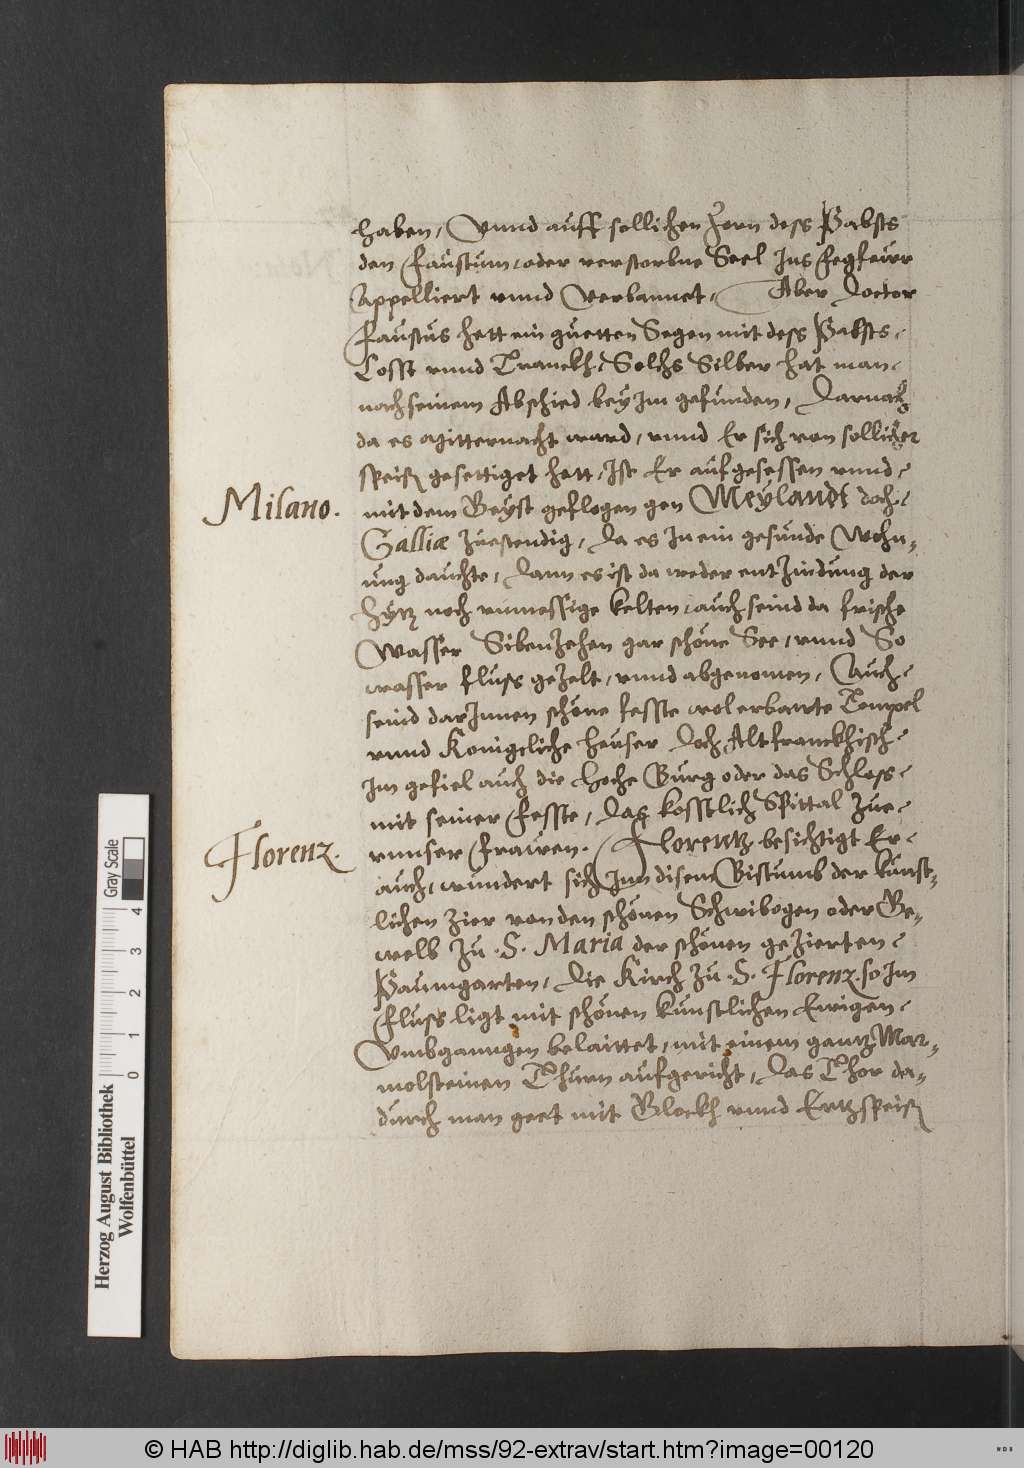 haben, Vnnd auff sollichen Zorn dess Pabsts
den Faustum, oder verstorbne Seel Ins Fegfeürr
Appelliert vnnd Verbannet, Aber Doctor
Faustus hett ein guetten Segen mit dess Pabsts
Cosst vnnd Tranckh, Solchs Silber hat man
nach seinem Abschied bey Jm gefunden, Darnach
da es Mitternacht ward, vnnd Er sich von sollicher
speiß gesettiget hett, Ist Er auf gesessen vnnd
Milano.
mit dem Geyst geflogen gen Meylandt doch
Galliæ zuestendig, Da es Jn ein gesunde Wohn-
ung dauchte, Dann es ist da weder entzindung der
Hytz noch vnmessige kelten, auch seind da frische
Wasser Sibenzehen gar schöne See, vnnd So
wasser fluss gezelt, vnnd abgenomen, Auch
seind darJnnen schöne fesste wolerbawte Tempel
vnnd Konigcliche heuser doch Altfranckhisch
Im gefiel auch die hoche Burg oder das Schloss
mit seiner Fesste, Das kosstlich Spittal zue
Florenz.
vnnser Frawen. Florentz besichtigt Er
auch, wundert sich Jnn disem Bistumb der kunst-
lichen Zier von den schönen Schwibogen oder Ge-
welb zu .S. Maria der schönen gezierten
Paumgarten, Die Kirch zu .S. Florenz. so Im
Fluss ligt mit schönen kunstlichen Ewigen
Vmbganngen belaittet, mit einem gantz Mar-
molsteinen Thurn aufgericht, Das Thor da-
durch man geet mit Glockh vnnd Ertzspeiß
Herzog August Bibliothek
Wolfenbüttel
Gray Scale
0 1 2 3 4
© HAB http://diglib.hab.de/mss/92-extrav/start.htm?image=00120